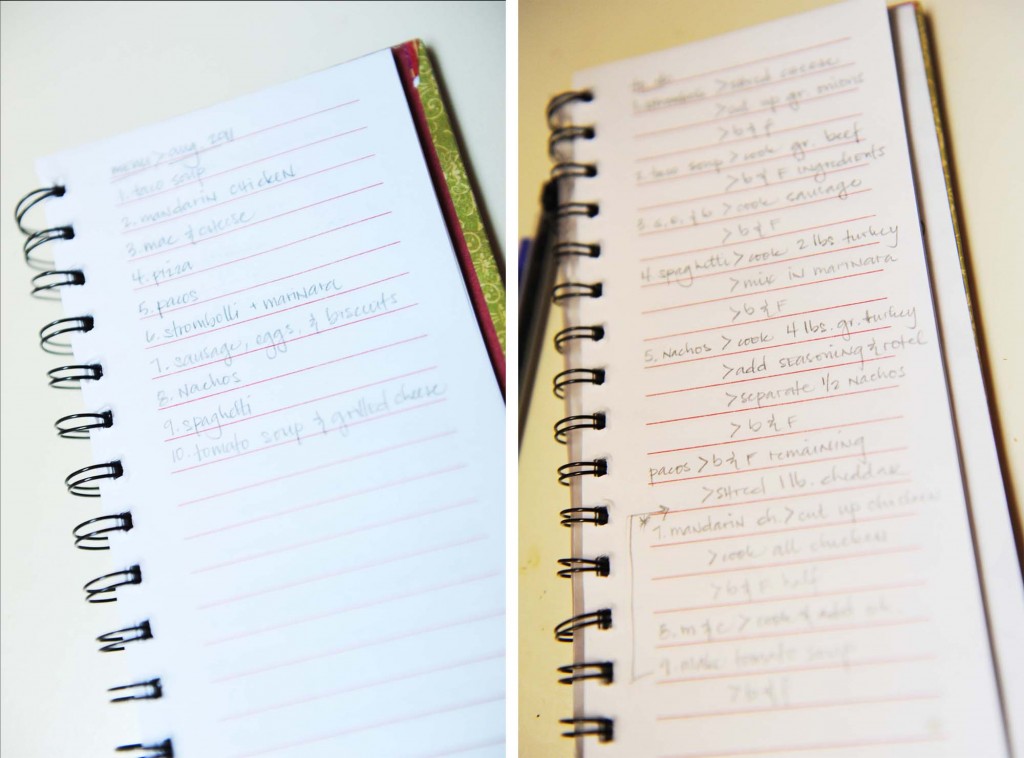 menu > aug. 2011
1. taco soup
2. mandarin chicken
3. mac & cheese
4. pizza
5. pacos
6. strombolli + marinara
7. sausage, eggs, & biscuits
8. Nachos
9. spaghetti
10. tomato soup & grilled cheese
to do
> shred cheese
> cut up gr. onions
> b & f
2. taco soup > cook gr. beef
> b & F ingredients
3. s.e. & b. > cook sausage
> b & F
4. spaghetti > cook 2 lbs turkey
> mix in marinara
> b & F
5. Nachos > cook 4 lbs. gr. turkey
> add seasoning & rotel
> separate 1/2 Nachos
> b & F
pacos > b & F remaining
> shred 1 lb. cheddar
7. mandarin ch. > cut up chicken
> cook all chicken
> b & F half
8. m & c. > cook & add ch.
9. make tomato soup
> b & f